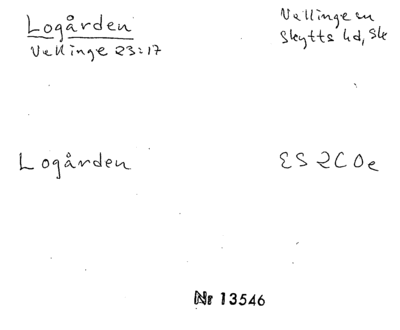 Logården
Vellinge 23:17
Vellinge sn
Skytts hd, Sk
Logården
ES 2C 0e
Nr 13546